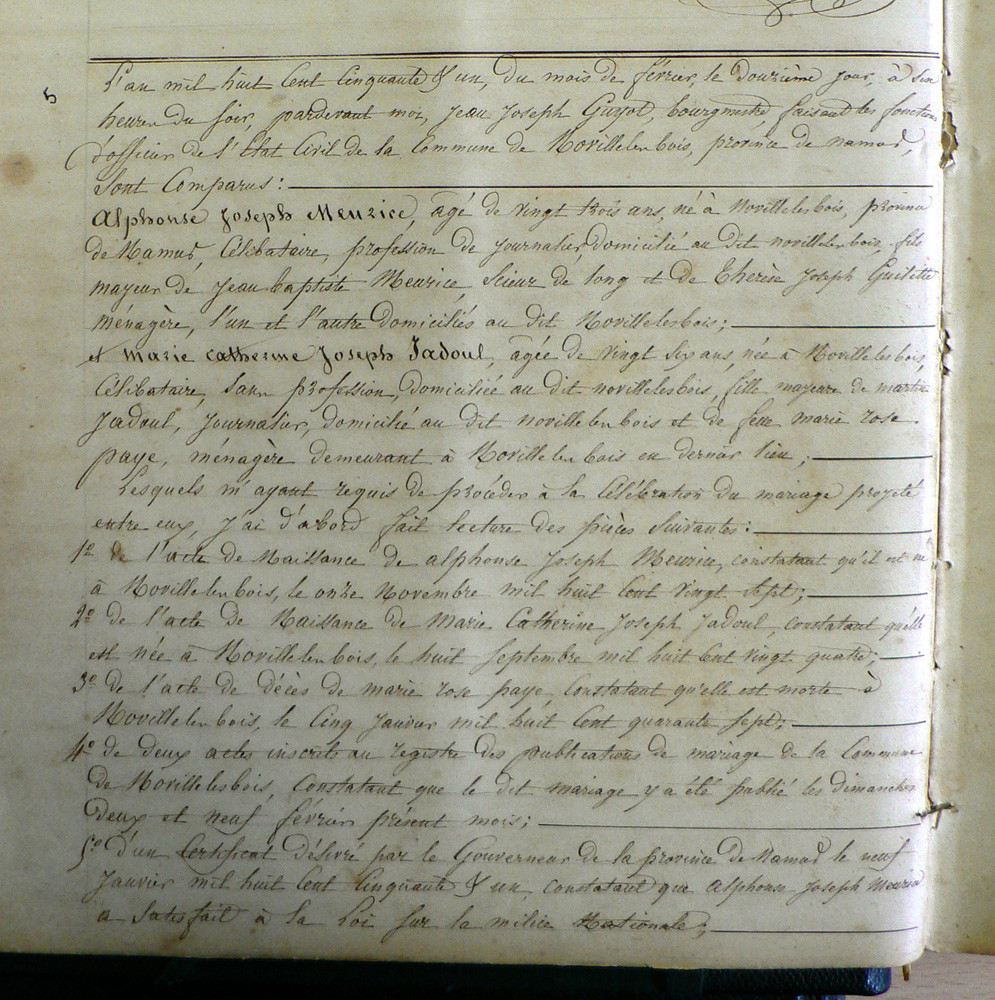 5
L'an mil huit Cent Cinquante & un, du mois de février, le Douzième jour, à six
heures du soir, pardevant moi, Jean Joseph Guyot, bourgmestre faisant les fonctions
d'officier de l'Etat Civil de la Commune de Novillelesbois, province de namur,
Sont Comparus :
Alphonse Joseph Meurice, agé de vingt trois ans, né à Novillelesbois, province
de Namur, Célibataire, profession de journalier, domicilié au dit novillelesbois, fils
mayeur de Jean baptiste Meurice, Scieur de long et de Therèse Joseph
ménagère, l'un et l'autre Domiciliés au dit Novillelesbois;
et marie catherine Joseph Jadoul, agée de Vingt Six ans, née à Novillelesbois,
Célibataire, Sans profession, domiciliée au dit novillelesbois, fille mayeure de martin
Jadoul, Journalier, domicilié au dit novillelesbois et de feue marie rose
paye, ménagère demeurant à Novillelesbois en dernier lieu ;
Lesquels m'ayant requis de procéder à la Célébration du mariage projeté
entre eux, j'ai d'abord fait lecture des pièces Suivantes :
1º de l'acte de Naissance de alphonse Joseph Meurice, constatant qu'il est né
à Novillelesbois, le onze Novembre mil huit Cent Vingt Sept;
2º de l'acte de Naissance de Marie Catherine Joseph Jadoul, constatant qu'elle
est née à Novillelesbois, le huit Septembre mil huit Cent Vingt quatre;
3º de l'acte de décès de marie rose paye, Constatant qu'elle est morte à
Novillelesbois, le Cinq Janvier mil huit Cent quarante Sept;
4º de deux actes inscrits au registre des publications de mariage de la Commune
de Novillelesbois, Constatant que le dit mariage y a été publié les dimanches
Deux et neuf février présent mois;
5º D'un Certificat Délivré par le Gouverneur de la province de Namur le neuf
Janvier mil huit Cent Cinquante & un, constatant que alphonse Joseph Meurice
a Satisfait à la Loi Sur la milice Nationale;